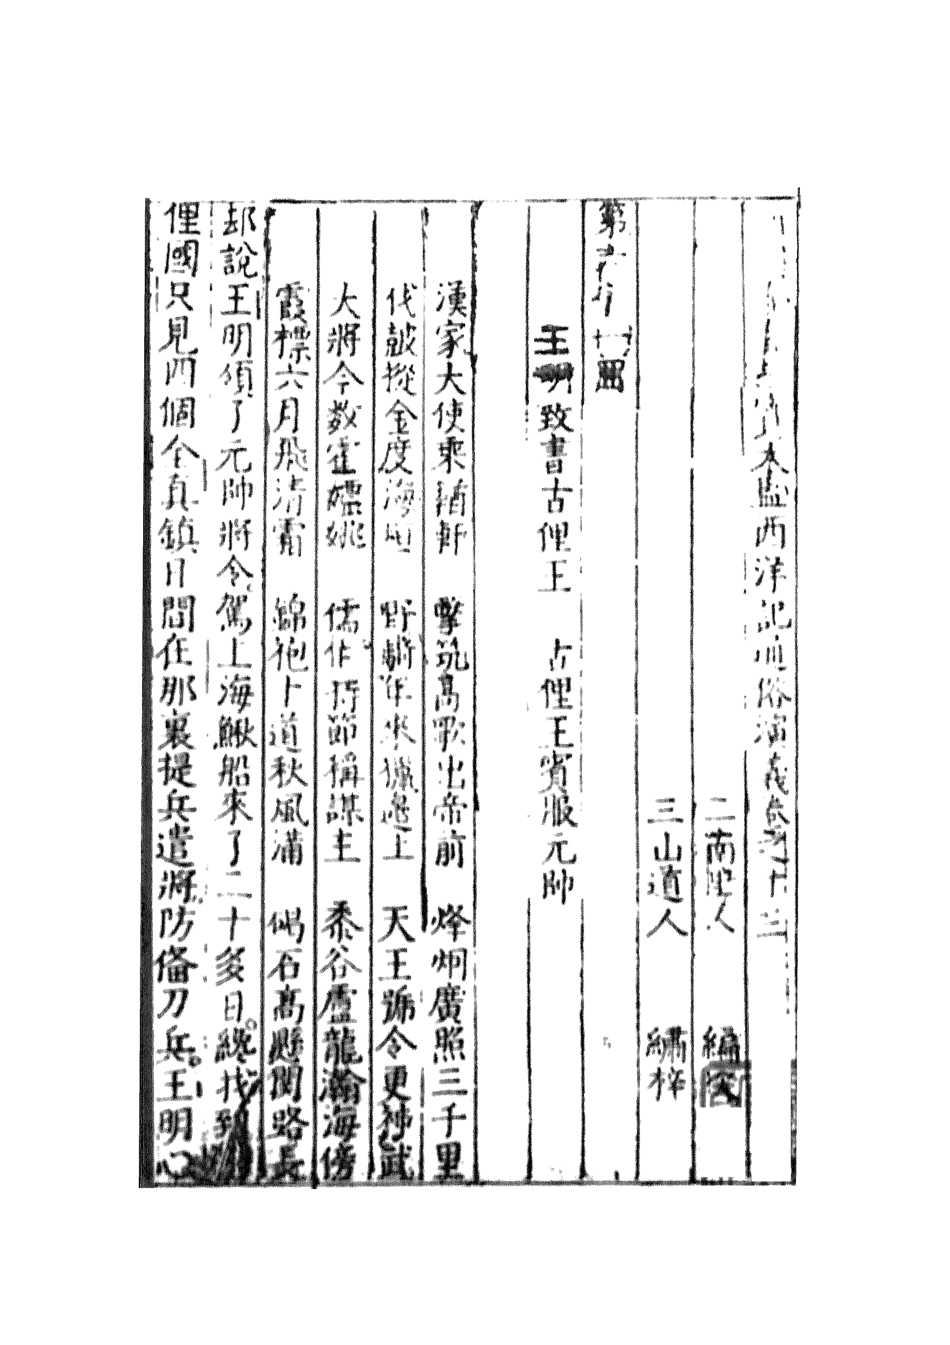 本監西洋記通俗演義卷之十三
二南里人　編次
三山道人　繡梓
第六十一回
王明致書古俚王　古俚王賓服元帥
漢家大使乘輶軒　擊筑高歌出帝前　烽炯廣照三千里
伐鼓摐金度海　野騎年來獵邊上　天王號令更神武
大將今數霍嫖姚　儒作持節稱謀主　黍谷盧龍瀚海傍
霞標六月飛清霜　錦袍卜道秋風滿　碣石高懸関路長
却說王明領了元帥將令駕上海鰍船來了二十多日。纔找到
俚國只見四個全真鎮日間在那裏提兵遣將防俻刀兵。王明心